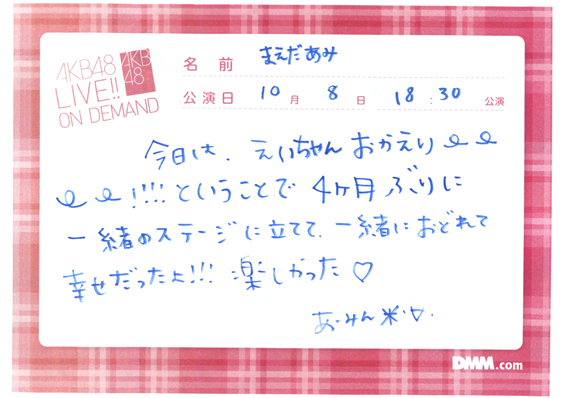 AKB48
LIVE!!
ON DEMAND
AKB
48
名前 まえだあみ
公演日 10月 8日 18:30 公演
今日は、えいちゃんおかえり
!!!!ということで4ヶ月ぶりに
一緒のステージに立てて、一緒におどれて
幸せだったよ!!! 楽しかった♡
あーみん米
DMM.com